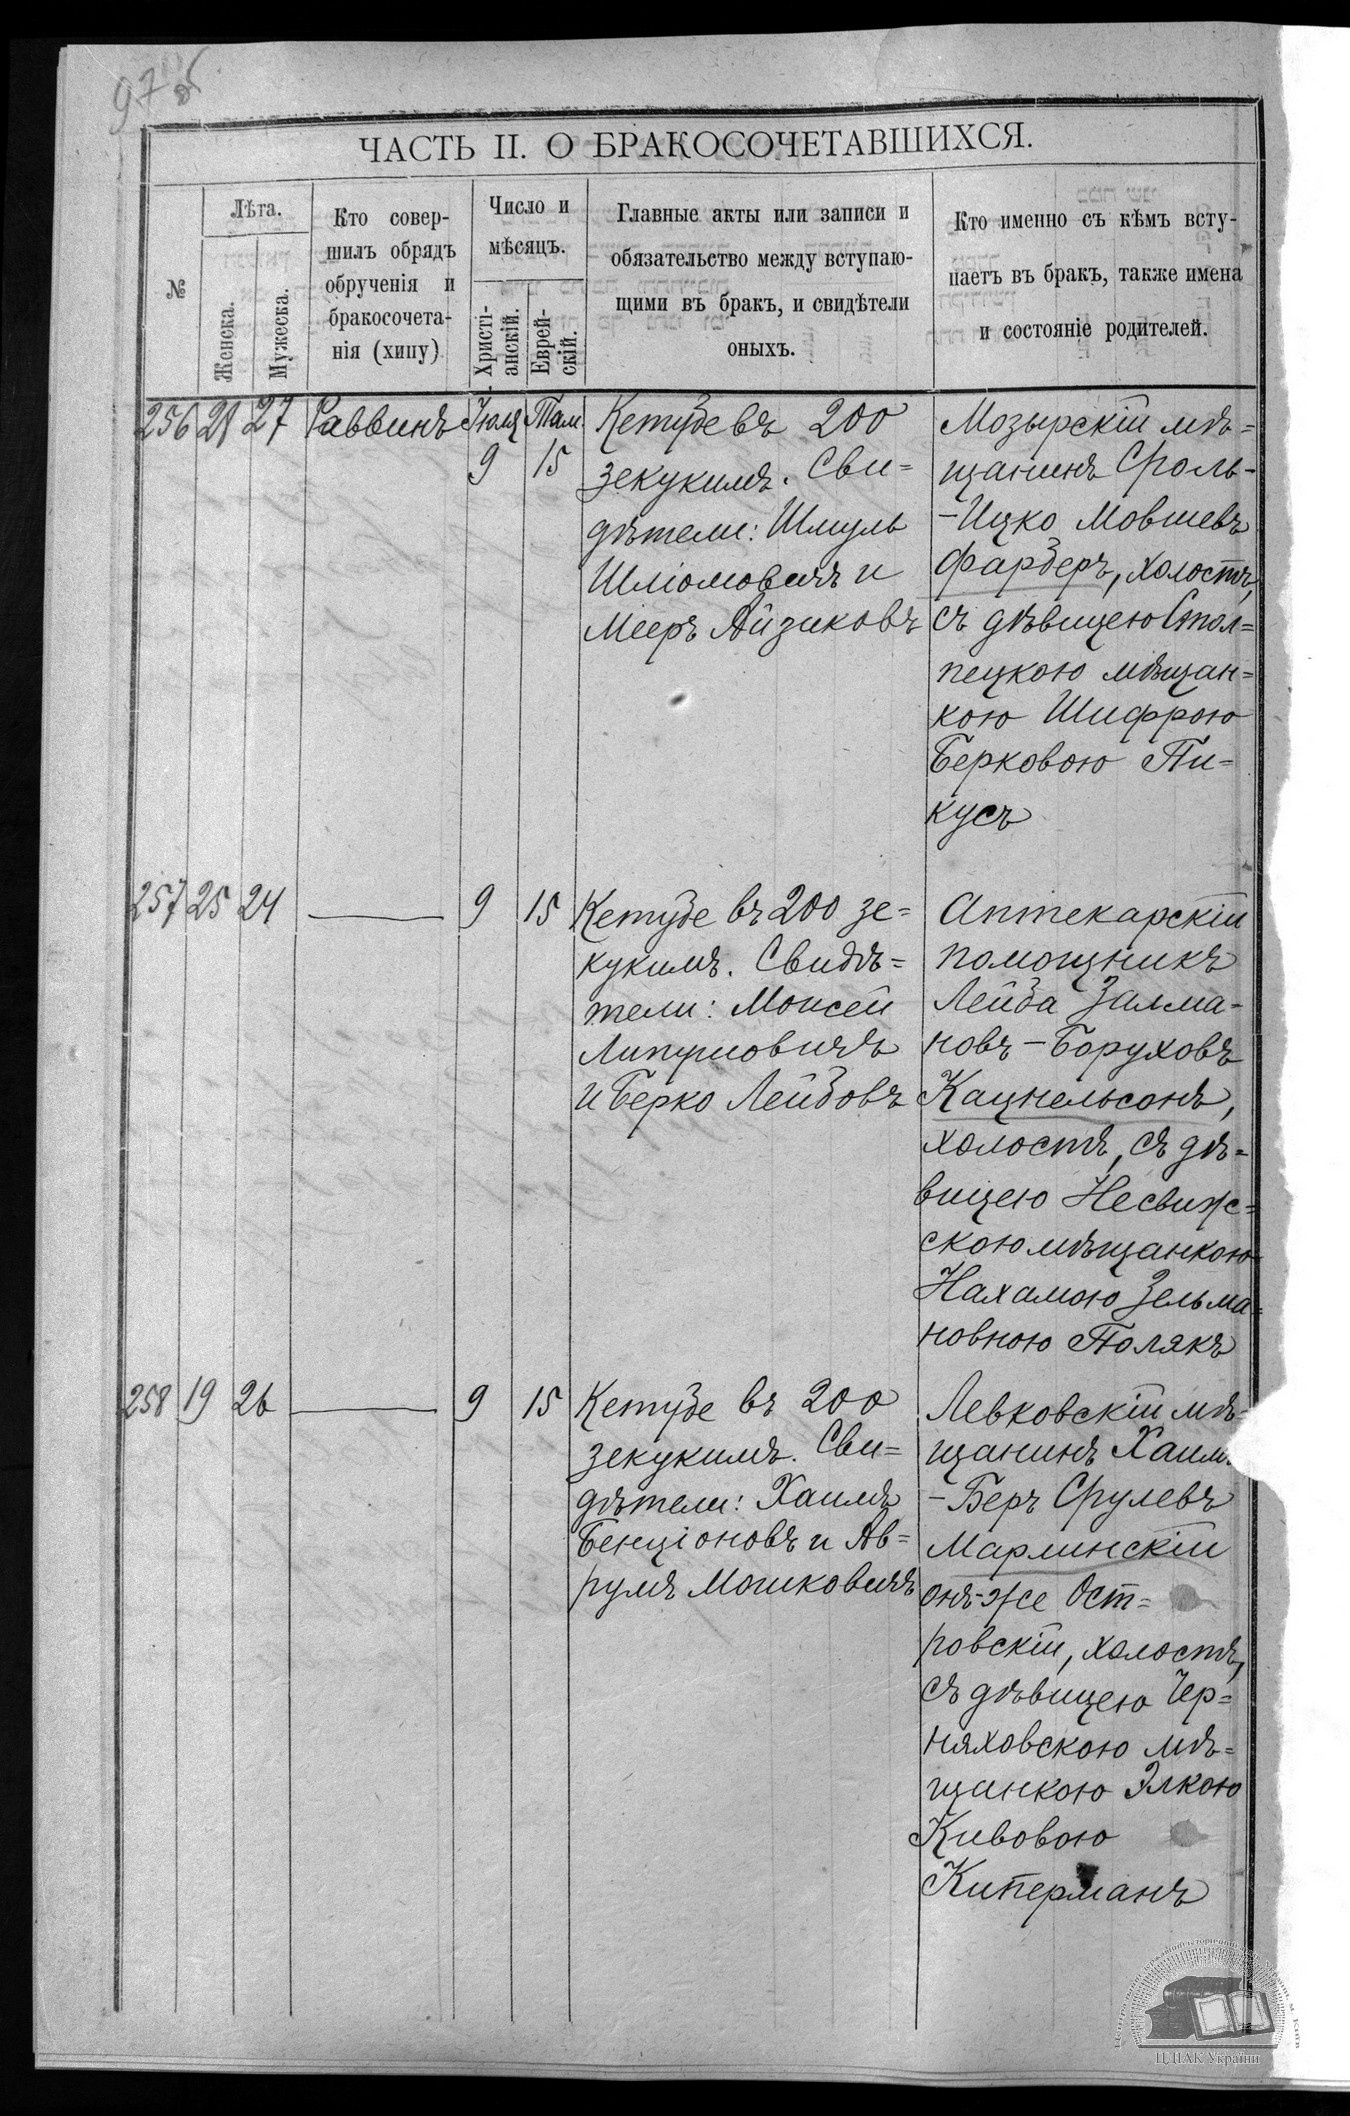 97 об
ЧАСТЬ II. О БРАКОСОЧЕТАВШИХСЯ.
№
Лѣта.
Женска.
Мужеска.
Кто совер-
шилъ обрядъ
обрученія и
бракосочета-
нія (хипу)
Число и
мѣсяцъ.
Христі-
анскій.
Еврей-
скій.
Главные акты или записи и
обязательство между вступаю-
щими въ бракъ, и свидѣтели
оныхъ.
Кто именно съ кѣмъ всту-
паетъ въ бракъ, также имена
и состояніе родителей.
256 21 27 Раввинъ Іюля 9 Там. 15
Кетубе въ 200
зекукимъ. Сви=
дѣтели: Шмуль
Шліомовичъ и
Мееръ Айзиковъ
Мозырскій мѣ=
щанинъ Сроль-
-Ицко Мовшевъ
Фарберъ, холостъ,
съ дѣвицею Стол=
пецкою мѣщан=
кою Шифрою
Берковою Пи=
кусъ
257 25 24 9 15
Кетубе въ 200 зе=
кукимъ. Свидѣ=
тели: Моисей
Липумовичъ
и Берко Лейбовъ
Аптекарскій
помощникъ
Лейба Залма-
новъ-Боруховъ
Кацнельсонъ,
холостъ, съ дѣ=
вицею Несвиж=
скою мѣщанкою
Нахамою Зельма=
новною Полякъ
258 19 26 9 15
Кетубе въ 200
зекукимъ. Сви=
дѣтели: Хаимъ
Бенціоновъ и Ав=
румъ Мошковичъ
Левковскій мѣ=
щанинъ Хаимъ
-Беръ Срулевъ
Марлинскій
онъ-же Ост=
ровскій, холостъ,
съ дѣвицею Чер=
няховскою мѣ=
щанкою Элкою
Кивовою
Киперманъ
ЦДІАК України